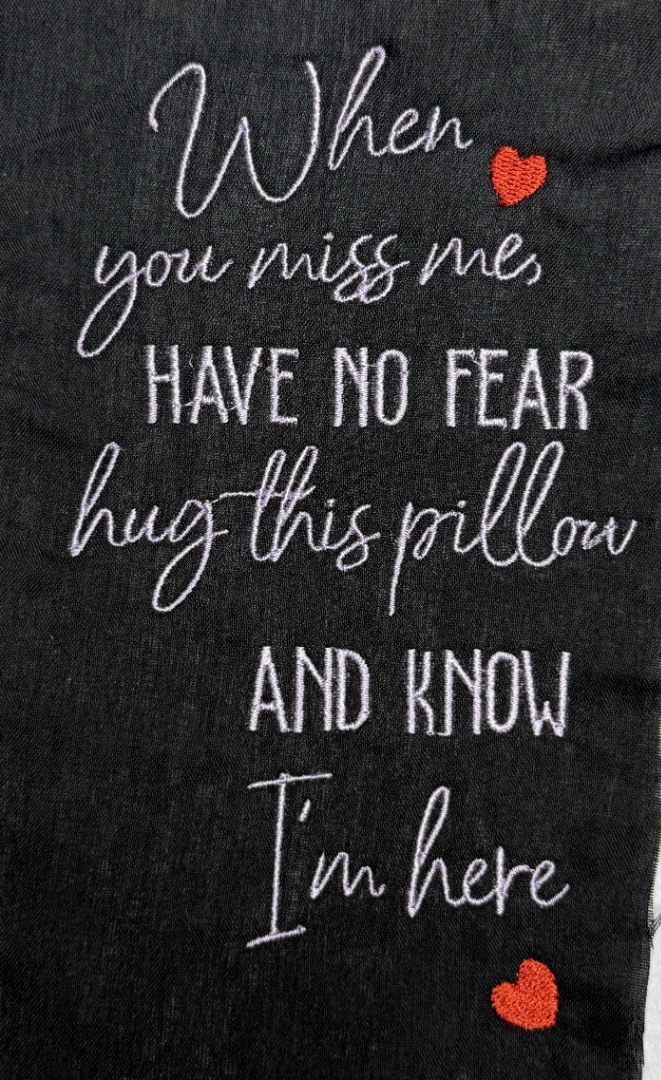 When
you miss me,
HAVE NO FEAR
hug this pillow
AND KNOW
I'm here